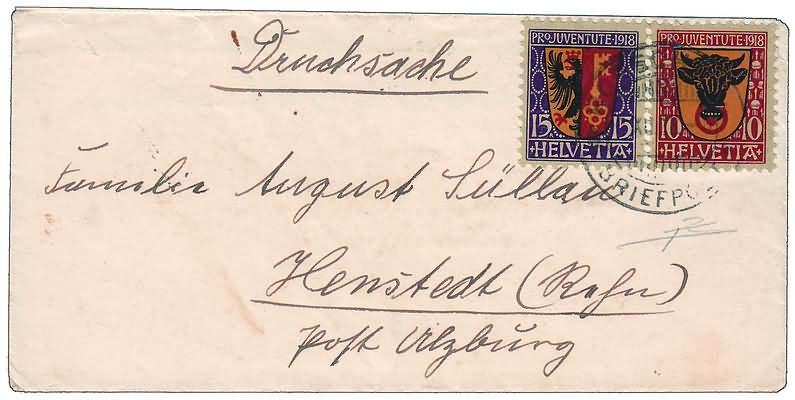 Drucksache
PRO JUVENTUTE·1918 PRO JUVENTUTE·1918
15 15 10 10
HELVETIA HELVETIA
BRIEFPOST
Familie August Süllau
Henstedt (Rahn)
Post Ulzburg